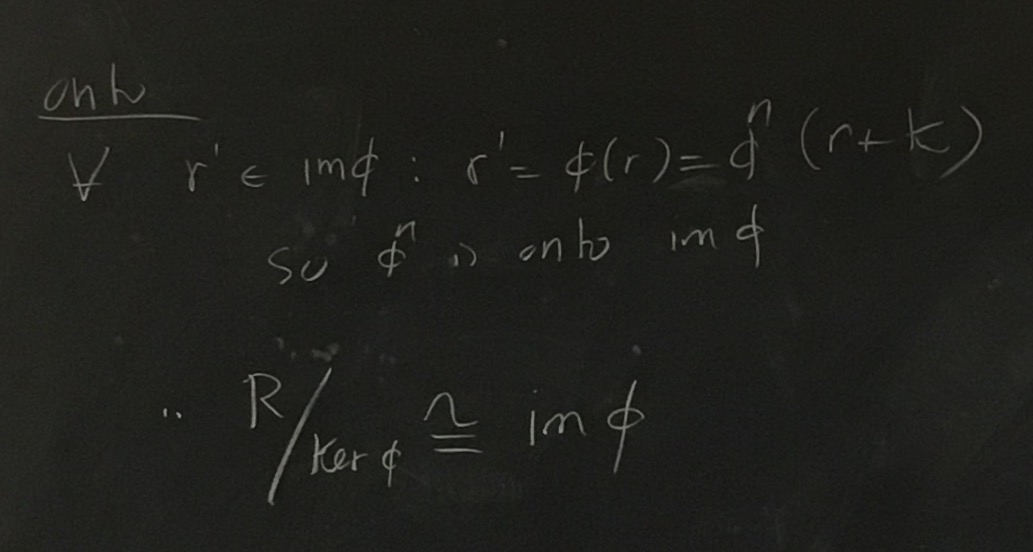 onto
∀ r' ∈ imϕ : r' = ϕ(r) = ϕ^n (r+k)
so ϕ^n is onto im ϕ
∴ R/ker ϕ ≅ im ϕ